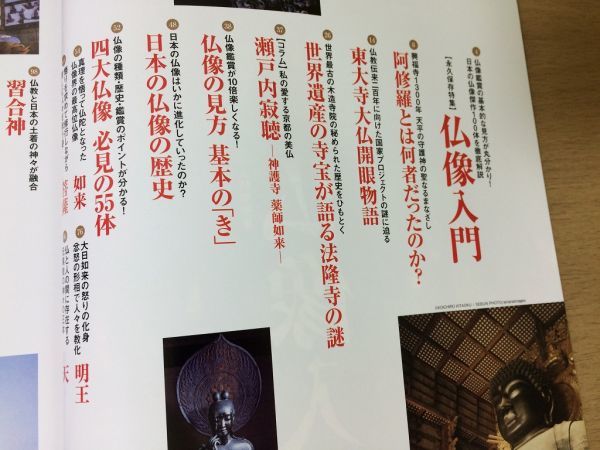 4
仏像鑑賞の基本的な見方が丸分かり!
日本の仏像傑作100体を徹底解説
【永久保存特集】
仏像入門
8
興福寺1300年 天平の守護神の聖なるまなざし
阿修羅とは何者だったのか?
14
仏教伝来二百年に向けた国家プロジェクトの謎に迫る
東大寺大仏開眼物語
26
世界最古の木造寺院の秘められた歴史をひもとく
世界遺産の寺宝が語る法隆寺の謎
37
【コラム】私の愛する京都の美仏
瀬戸内寂聴
―神護寺 薬師如来―
38
仏像鑑賞が10倍楽しくなる!
仏像の見方 基本の「き」
48
日本の仏像はいかに進化していったのか?
日本の仏像の歴史
52
仏像の種類・歴史・鑑賞のポイントが分かる!
四大仏像 必見の55体
真理を悟って仏陀となった
仏像界の最高位仏像
如来
76
大日如来の怒りの化身
忿怒の形相で人々を教化
明王
仏と人の間に存在する
天
98
仏教と日本の土着の神々が融合
習合神